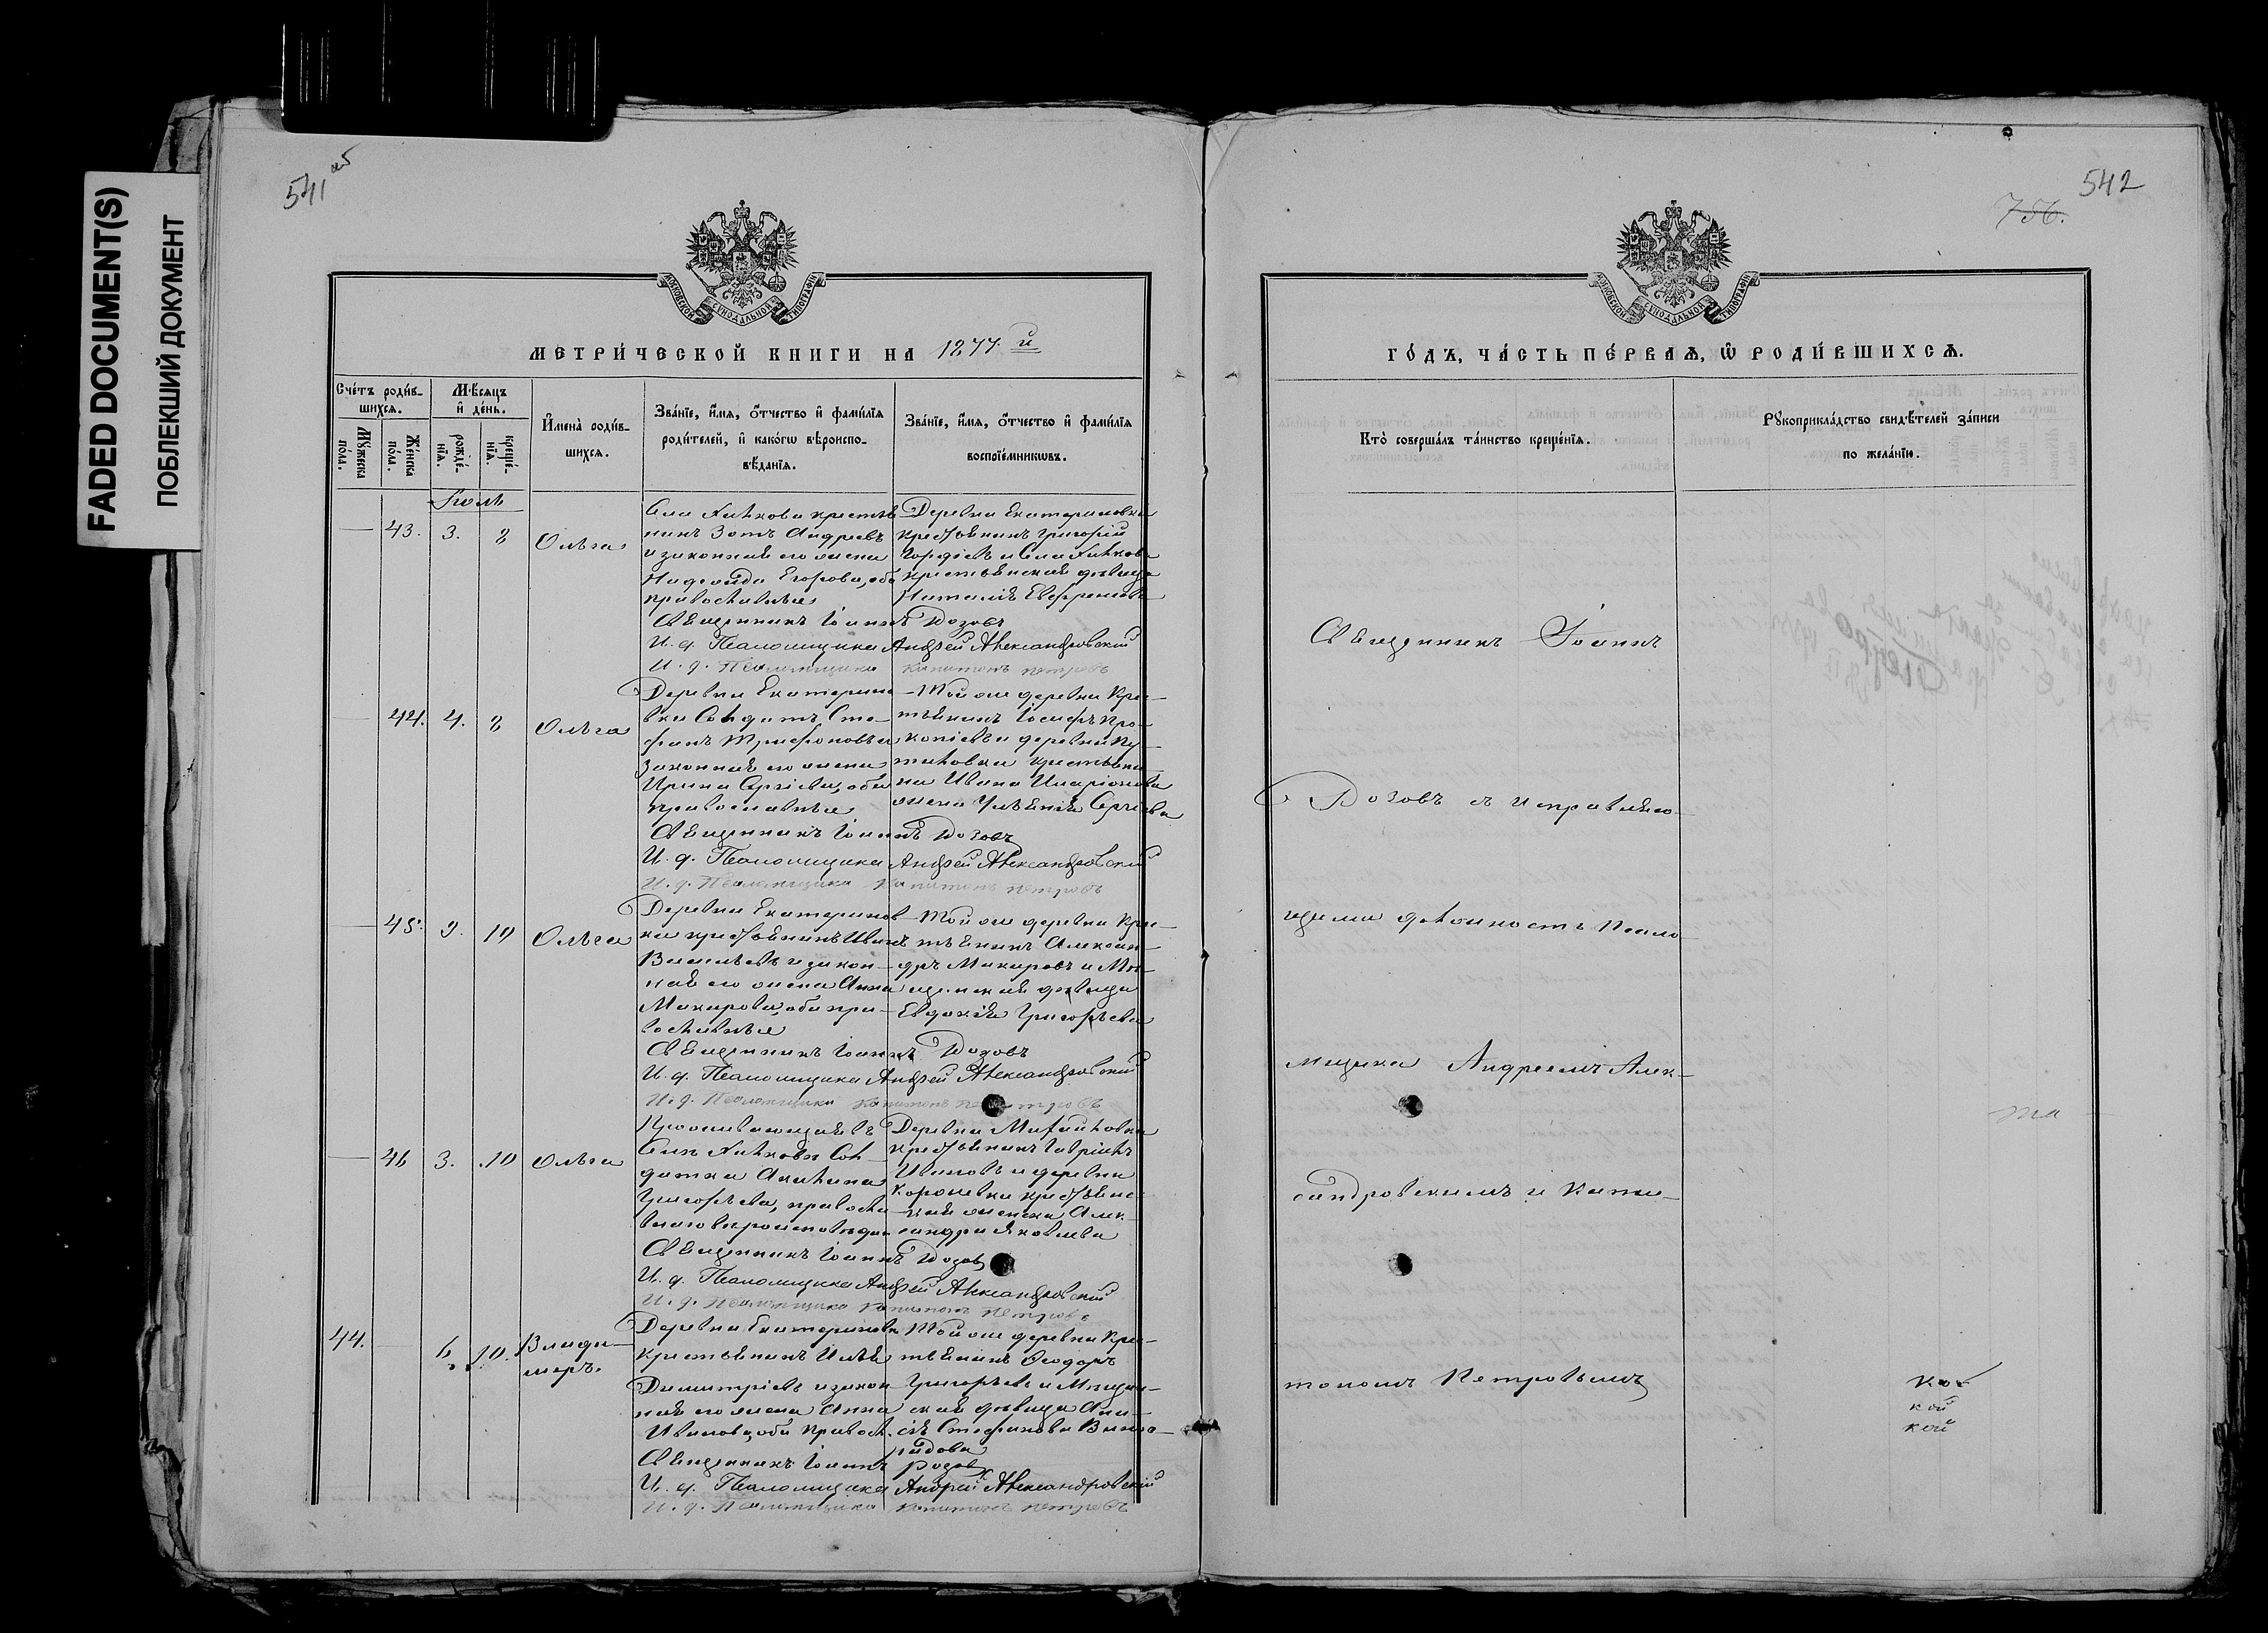 FADED DOCUMENT(S)
ПОБЛЕКШИЙ ДОКУМЕНТ
541 об
МОСКОВСКОЙ СѴНОДАЛЬНОЙ ТИПОГРАФІИ
МЕТРИ́ЧЕСКОЙ КНИГИ НА 1877. й
Сче́тъ роди́в-
шихсѧ.
Мꙋ́жеска
по́ла.
Же́нска
по́ла.
Мѣ́сѧцъ
и҆ де́нь.
рожде́-
нїѧ.
креще́-
нїѧ.
И҆мена̀ роди́в-
шихсѧ.
Зва́нїе, и҆́мѧ, ѻ҆́тчество и҆ фами́лїѧ
роди́телей, и҆ како́гѡ вѣ̀роиспо-
вѣ́данїѧ.
Зва́нїе, и҆́мѧ, ѻ҆́тчество и҆ фами́лїѧ
воспрїе́мникѡвъ.
Іюль
43. 3. 8 Ольга
Села крестья
нинъ Зотъ Андреевъ
и законная его жена
Егорова, оба
православные
Деревни Екатериновки
крестьянинъ Григорій
Гордѣевъ и Села
крестьянская дѣвица
Наталія
Священникъ Іоаннъ Розовъ
И. д. Псаломщика Андрей Александровскій
И. д. Псаломщика Капитонъ Петровъ
44. 4. 8 Ольга
Деревни Екатерино
вки Солдатъ Сте-
фанъ Трифоновъ и
законная его жена
Ирина Сергіева, оба
православные
Той же деревни Кре-
стьянинъ Іосифъ Про-
копіевъ и деревни
крестьяни
на Ивана Иларіонова
жена Ульянія Сергіева
Священникъ Іоаннъ Розовъ
И. д. Псаломщика Андрей Александровскій
И. д. Псаломщика Капитонъ Петровъ
45. 9. 10 Ольга
Деревни Екатеринов
ки крестьянинъ Иванъ
Васильевъ и закон-
ная его жена Анна
Макарова, оба пра-
вославные
Той же деревни Кре-
стьянинъ Алексан-
дръ Макаровъ и Мѣ-
щанская дѣвица
Евдокія Григорьева
Священникъ Іоаннъ Розовъ
И. д. Псаломщика Андрей Александровскій
И. д. Псаломщика Капитонъ Петровъ
46 3. 10 Ольга
Проживающая въ
Селѣ Сол-
датка Акилина
Григорьева, правосла
внаго вѣроисповѣдан
Деревни Михайловки
крестьянинъ Гавріилъ
Ивановъ и деревни
крестьянс-
кая женка Алек-
сандра Яковлева
Священникъ Іоаннъ Розовъ
И. д. Псаломщика Андрей Александровскій
И. д. Псаломщика Капитонъ Петровъ
44. 6. 10. Влади-
меръ.
Деревни Екатериновки
Крестьянинъ Илья
Димитріевъ и закон
ная его жена Анна
Иванова, оба правосл.
Той же деревни Кре-
стьянинъ Ѳеодоръ
Григорьевъ и Мѣщан-
ская дѣвица Ани-
сія Стефанова Вино-
градова
Священникъ Іоаннъ Розовъ
И. д. Псаломщика Андрей Александровскій
И. д. Псаломщика Капитонъ Петровъ
542
756.
МОСКОВСКОЙ СѴНОДАЛЬНОЙ ТИПОГРАФІИ
ГО́ДЪ, ЧА́СТЬ ПЕ́РВАѦ, Ѡ҆ РОДИ́ВШИХСѦ.
Кто̀ соверша́лъ та́инство креще́нїѧ.
Рꙋкоприкла́дство свидѣ́телей за́писи
по жела́нїю.
Священникъ Іоаннъ
Розовъ съ исправляю-
щими должность псало-
мщика Андреемъ Алек-
сандровскимъ и Капи-
тономъ Петровымъ
та
кой
кой